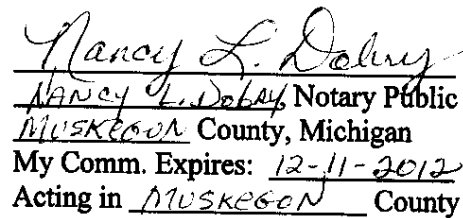 Nancy L. Dobry
NANCY L. DOBRY, Notary Public
MUSKEGON County, Michigan
My Comm. Expires: 12-11-2012
Acting in MUSKEGON County